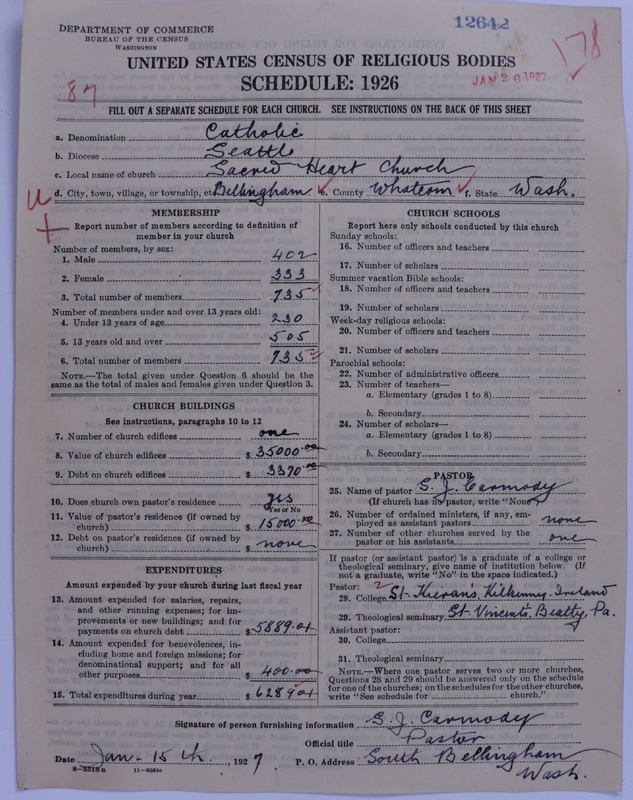 DEPARTMENT OF COMMERCE
BUREAU OF THE CENSUS
WASHINGTON
12642
178
UNITED STATES CENSUS OF RELIGIOUS BODIES
SCHEDULE: 1926
JAN 26 1927
87
FILL OUT A SEPARATE SCHEDULE FOR EACH CHURCH. SEE INSTRUCTIONS ON THE BACK OF THIS SHEET
a. Denomination Catholic
b. Diocese Seattle
c. Local name of church Sacred Heart Church
d. City, town, village, or township, etc. Bellingham e. County Whatcom f. State Wash.
MEMBERSHIP
Report number of members according to definition of
member in your church
Number of members, by sex:
1. Male 402
2. Female 333
3. Total number of members 735
Number of members under and over 13 years old:
4. Under 13 years of age 230
5. 13 years old and over 505
6. Total number of members 735
NOTE.—The total given under Question 6 should be
same as the total of males and females given under Question 3.
CHURCH BUILDINGS
See instructions, paragraphs 10 to 12
7. Number of church edifices one
8. Value of church edifices $35000.00
9. Debt on church edifices $3370.00
10. Does church own pastor's residence yes
Yes or No
11. Value of pastor's residence (if owned by
church) $15000.00
12. Debt on pastor's residence (if owned by
church) $none
EXPENDITURES
Amount expended by church during last fiscal year
13. Amount expended for salaries, repairs,
and other running expenses; for im-
provements or new buildings; and for
payments on church debt $5889.01
14. Amount expended for benevolences, in-
cluding home and foreign missions; for
denominational support; and for all
other purposes $400.00
15. Total expenditures during year $6289.01
CHURCH SCHOOLS
Report here only schools conducted by this church
Sunday schools:
16. Number of officers and teachers
17. Number of scholars
Summer vacation Bible schools:
18. Number of officers and teachers
19. Number of scholars
Week-day religious schools:
20. Number of officers and teachers
21. Number of scholars
Parochial schools:
22. Number of administrative officers
23. Number of teachers—
a. Elementary (grades 1 to 8)
b. Secondary
24. Number of scholars—
a. Elementary (grades 1 to 8)
b. Secondary
PASTOR
25. Name of pastor S. J. Carmody
(If church has no pastor, write "None")
26. Number of ordained ministers, if any, em-
ployed as assistant pastors none
27. Number of other churches served by the
pastor or his assistants one
If pastor (or assistant pastor) is a graduate of a college or
theological seminary, give name of institution below. (If
not a graduate, write "No" in the space indicated.)
Pastor: 2
28. College St. Kierans, Kilkenny, Ireland
29. Theological seminary St. Vincents, Beatty, Pa.
Assistant pastor:
30. College
31. Theological seminary
NOTE.—Where one pastor serves two or more churches,
Questions 28 and 29 should be answered only on the schedule
for one of the churches; on the schedules for the other churches,
write "See schedule for church."
Signature of person furnishing information S. J. Carmody
Official title Pastor
Date Jan. 15th, 1927 P. O. Address South Bellingham
Wash.
8—5518a 11—9084a